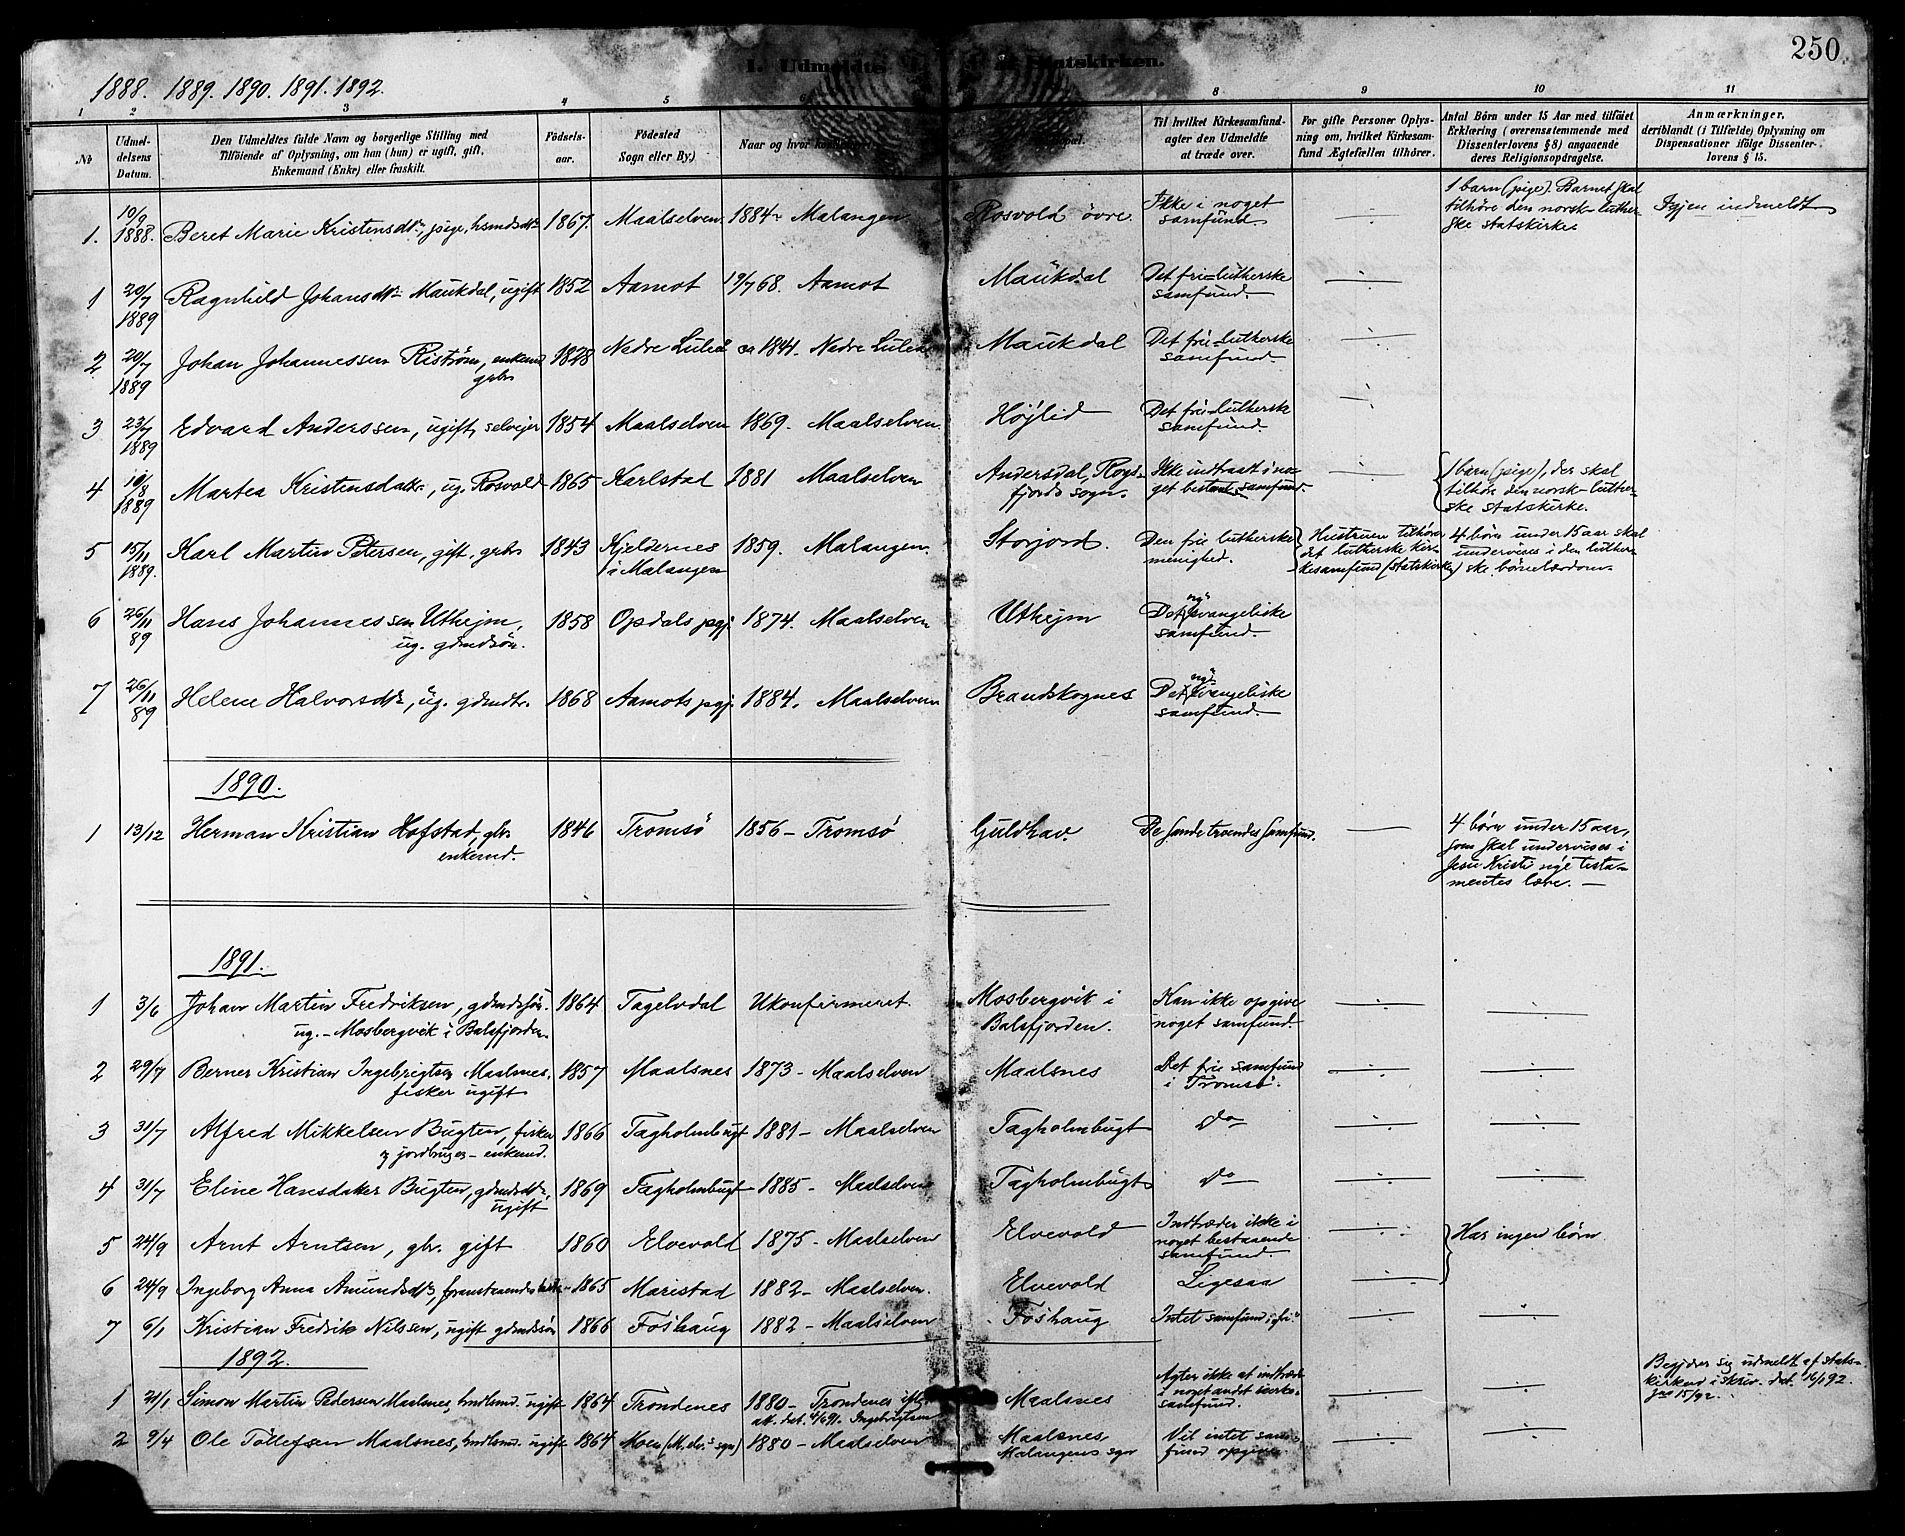 250.
I. Udmeldte Statskirken.
1888. 1889. 1890. 1891. 1892.
1 2 3 4 5 6 8 9 10 11
No
Udmeldelsens Datum.
Den Udmeldtes fulde Navn og borgerlige Stilling med Tilføiende af Oplysning, om han (hun) er ugift, gift, Enkemand (Enke) eller fraskilt.
Fødselsaar.
Fødested Sogn eller By.)
Naar og hvor
Til hvilket Kirkesamfund agter den Udmeldte at træde over.
For gifte Personer Oplysning om, hvilket Kirkesamfund Ægtefællen tilhører.
Antal Børn under 15 Aar med tilføiet Erklæring (overensstemmende med Dissenterlovens § 8) angaaende deres Religionsopdragelse.
Anmærkninger, deriblandt (i Tilfælde) Oplysning om Dispensationer ifølge Dissenterlovens § 15.
1. 10/9 1888. Beret Marie Kristensdtr, pige, 1867. Maalselven 1884 Malangen Rosvold øvre. Ikke i noget samfund. ÷ 1 barn (pige). Barnet skal tilhøre den norsk-lutherske statskirke. Igjen indmeldt
1 20/7 1889 Ragnhild Johansdtr Maukdal, ugift 1852 Aamot 19/7 68. Aamot Maukdal Det fri-lutherske samfund. ÷
2 20/7 1889 Johan Johannessen Riström, enkemd gbr 1828 Nedre Luleå ca 1841. Nedre Luleå Maukdal Det fri-lutherske samfund. ÷
3 23/7 1889 Edvard Anderssen, ugift, selveier 1854 Maalselven 1869. Maalselven. Højlid Det fri-lutherske samfund. ÷
4 10/8 1889 Martea Kristensdatter, ug. Rosvold 1865 Karlstad 1881 Maalselven Andersdal, fjords sogn. Ikke indtraat i noget samfund. ÷ 1 barn (pige), der skal tilhøre den norsk-lutherske statskirke.
5 15/11 1889. Karl Martin Petersen, gift, gbr 1843 Kjeldernes i Malangen 1859. Malangen. Storjord. Den frie lutherske menighed. Hustruen tilhører det lutherske kirkesamfund (statskirke) 4 børn under 15 aar skal undervises i den lutherske børnelærdom.
6 26/11 89 Hans Johannessen Uthejm, ug. gdmdsøn. 1858 Opdals pgj. 1874. Maalselven Uthejm Det ny evangeliske samfund.
7 26/11 89 Helene Halvorsdtr, ug. gdmdtr. 1868 Aamots pgj. 1884. Maalselven Brandskognes Det ny evangeliske samfund.
1890.
1 13/12 Herman Kristian Hofstad, gbr. enkemd. 1846 Tromsö 1856 – Tromsö Guldhav. De sande troendes samfund. — 4 børn under 15 aar, som skal undervises i Jesu Kristi nye testamentes lære. —
1891.
1 3/6 Johan Martin Fredriksen, gdmdssøn. ug. – Mosbergvik i Balsfjorden. 1864 Tagelvdal Ukonfirmeret. Mosbergvik i Balsfjorden. Kan ikke opgive noget samfund. ÷ ÷
2 29/7 Berner Kristian Ingebrigtsen Maalsnes, fisker ugift 1857 Maalsnes 1873 – Maalselven Maalsnes Det frie samfund i Tromsø. ÷ ÷
3 31/7 Alfred Mikkelsen Bugten, fisker og jordbruger – enkemd. 1866 Tagholmbugt 1881 – Maalselven Tagholmbugt do ÷ ÷
4 31/7 Eline Hansdatter Bugten, gdmdsdtr, ugift 1869 Tagholmbugt 1885 – Maalselven Tagholmbugt do ÷ ÷
5 24/9 Arnt Arntsen, gbr. gift 1860 Elvevold 1875 – Maalselven Elvevold Indtræder ikke i noget bestaaende samfund. ÷ Har ingen børn
6 24/9 Ingeborg Anna Amundsdtr, foranstaaendes 1865 Maristad 1882 – Maalselven. Elvevold Ligesaa ÷
7 6/1 Kristian Fredrik Nilssen, ugift gdmdssøn 1866 Foshaug 1882 – Maalselven Foshaug Intet samfund ÷
1892.
1 21/1 Simon Martin Pedersen Maalsnes, ugift 1864 Trondenes 1880 – Trondenes iflg. att. dat. Ingebrigtsen Maalsnes Agter ikke at indtræde i noget andet kirkesamfund. ÷ ÷ Begjærer sig udmeldt af statskirken i skriv. dat. 16/1 92. 15/92.
2 9/4 Ole Tollefsen Maalsnes, ugift 1864 Moen 1880 – Maalselven Maalsnes Malangens sgn Vil intet samfund opgive. ÷ ÷